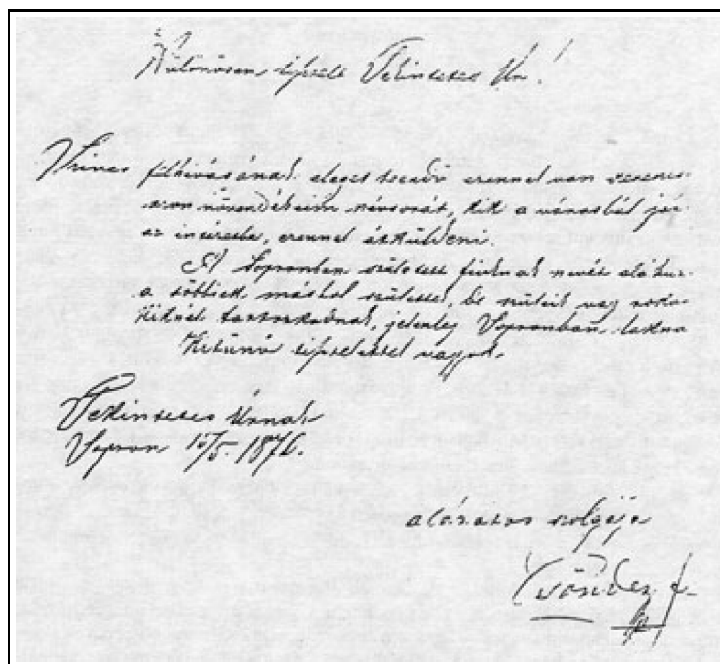 Különösen tisztelt Tekintetes Úr!
Szives felhivásának eleget teendő ezennel van szerencsém
azon növendékeim névsorát, kik a városból jár
az intézetbe, ezennel átküldeni.
A Sopronban született fiuknak nevét aláhuz
a többiek máshol születtek, de szüleik vagy roko
kiknél tartózkodnak, jelenleg Sopronban lakna
Kitünő tisztelettel vagyok
Tekintetes Úrnak
Sopron 15/5. 1876.
alázatos szolgája